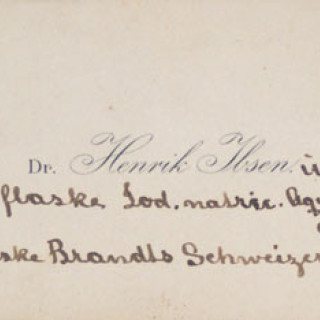 Dr. Henrik Ibsen.
flaske Sod. natric.
Brandts Schweizer